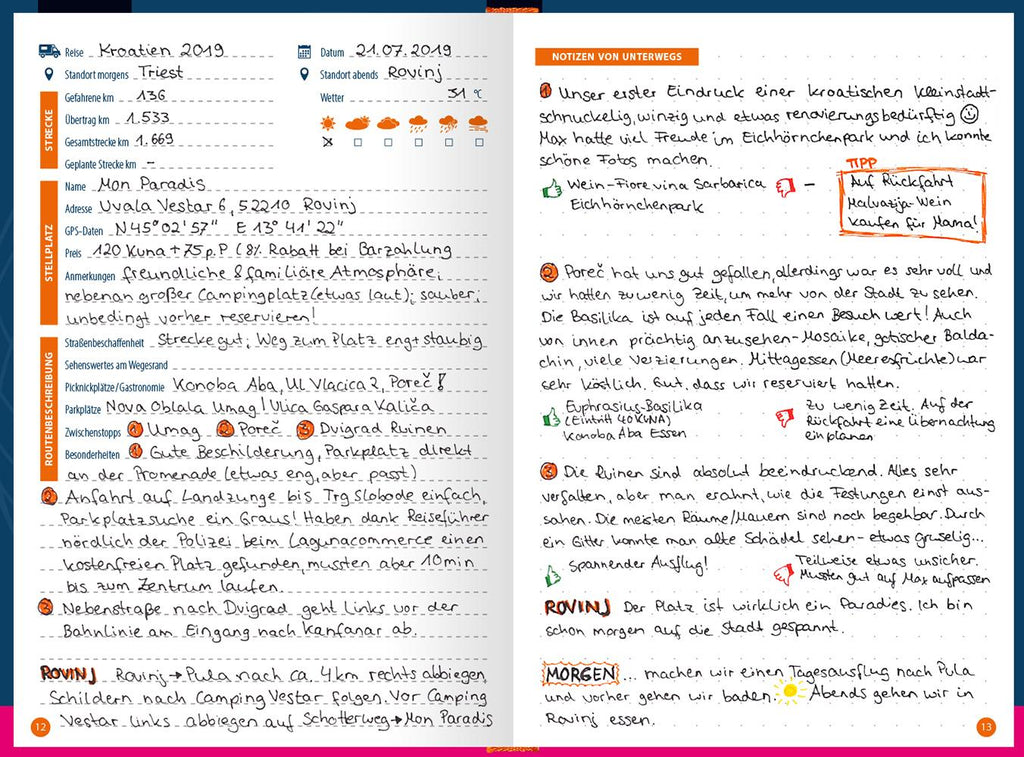 Reise Kroatien 2019
Datum 21.07.2019
Standort morgens Triest
Standort abends Rovinj
STRECKE
Gefahrene km 136
Wetter 31 °C
Übertrag km 1.533
Gesamtstrecke km 1.669
Geplante Strecke km –
STELLPLATZ
Name Mon Paradis
Adresse Uvala Vestar 6, 52210 Rovinj
GPS-Daten N45° 02' 57" E 13° 41' 22"
Preis 120 Kuna + 75 p.P (8% Rabatt bei Barzahlung
Anmerkungen freundliche & familiäre Atmosphäre;
nebenan großer Campingplatz (etwas laut); sauber;
unbedingt vorher reservieren!
ROUTENBESCHREIBUNG
Straßenbeschaffenheit Strecke gut; Weg zum Platz eng + staubig
Sehenswertes am Wegesrand
Picknickplätze/Gastronomie Konoba Aba, Ul Vlacica 2, Poreč!
Parkplätze Nova Oblala Umag / Ulica Gaspara Kaliča
Zwischenstopps 1 Umag 2 Poreč 3 Dvigrad Ruinen
Besonderheiten 1 Gute Beschilderung, Parkplatz direkt
an der Promenade (etwas eng, aber passt)
2 Anfahrt auf Landzunge bis Trg Slobode einfach,
Parkplatzsuche ein Graus! Haben dank Reiseführer
nördlich der Polizei beim Lagunacommerce einen
kostenfreien Platz gefunden, mussten aber 10min
bis zum Zentrum laufen.
3 Nebenstraße nach Dvigrad geht links vor der
Bahnlinie am Eingang nach Kanfanar ab.
ROVINJ Rovinj → Pula nach ca. 4km rechts abbiegen,
Schildern nach Camping Vestar folgen. Vor Camping
Vestar links abbiegen auf Schotterweg → Mon Paradis
12
NOTIZEN VON UNTERWEGS
1 Unser erster Eindruck einer kroatischen Kleinstadt-
schnuckelig, winzig und etwas renovierungsbedürftig ☺
Max hatte viel Freude im Eichhörnchenpark und ich konnte
schöne Fotos machen.
Wein-Fiore vina Sarbarica
Eichhörnchenpark
–
TIPP
Auf Rückfahrt
Malvazija-Wein
kaufen für Mama!
2 Poreč hat uns gut gefallen, allerdings war es sehr voll und
wir hatten zu wenig Zeit, um mehr von der Stadt zu sehen.
Die Basilika ist auf jeden Fall einen Besuch wert! Auch
von innen prächtig anzusehen - Mosaike, gotischer Balda-
chin, viele Verzierungen. Mittagessen (Meeresfrüchte) war
sehr köstlich. Gut, dass wir reserviert hatten.
Euphrasius-Basilika
(Eintritt 40 KUNA)
Konoba Aba Essen
Zu wenig Zeit. Auf der
Rückfahrt eine Übernachtung
einplanen
3 Die Ruinen sind absolut beeindruckend. Alles sehr
verfallen, aber man erahnt, wie die Festungen einst aus-
sahen. Die meisten Räume/Mauern sind noch begehbar. Durch
ein Gitter konnte man alte Schädel sehen - etwas gruselig...
Spannender Ausflug!
Teilweise etwas unsicher.
Mussten gut auf Max aufpassen
ROVINJ Der Platz ist wirklich ein Paradies. Ich bin
schon morgen auf die Stadt gespannt.
MORGEN ... machen wir einen Tagesausflug nach Pula
und vorher gehen wir baden. Abends gehen wir in
Rovinj essen.
13